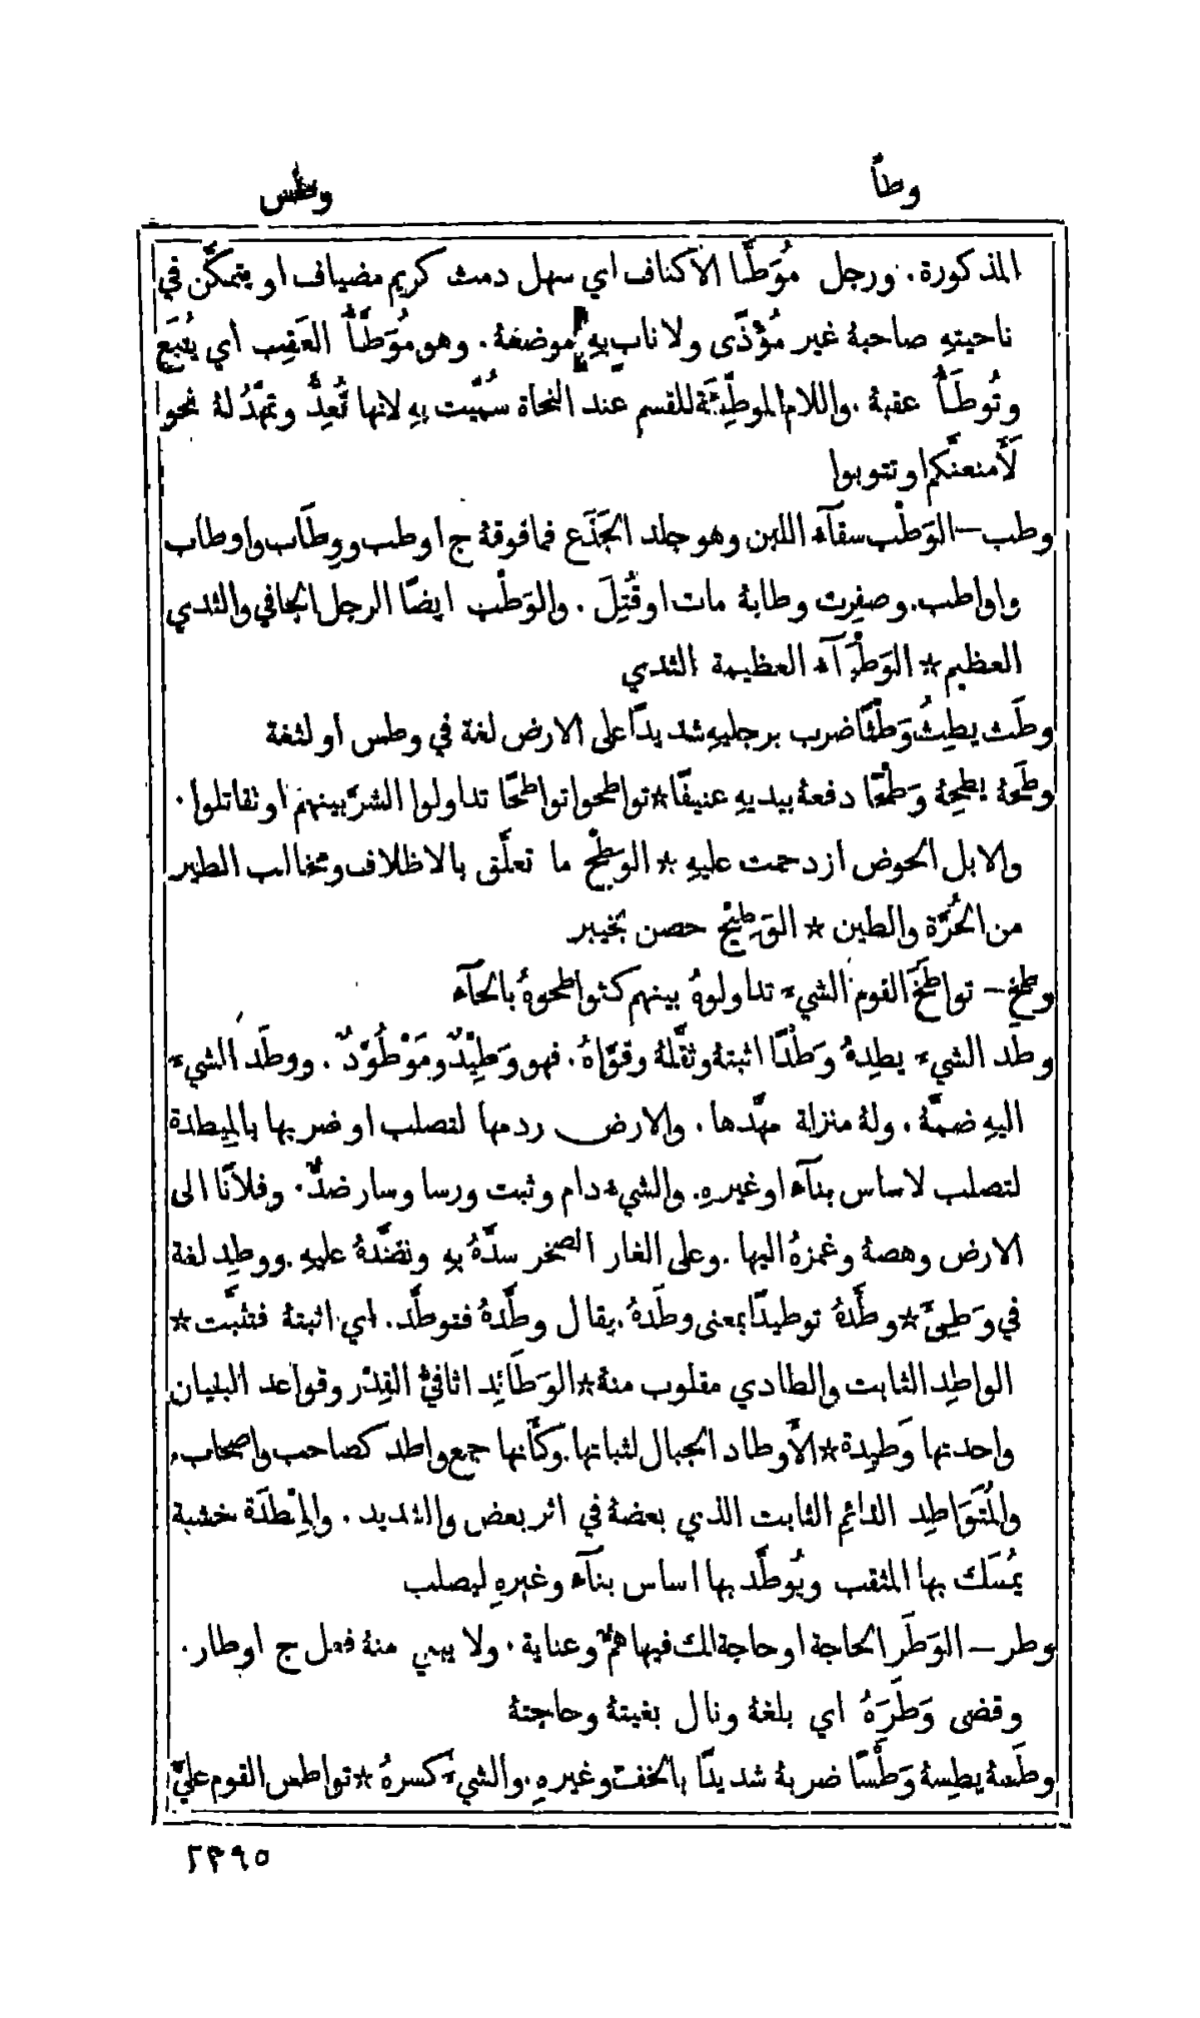 وطأ
وطس
المذكورة. ورجل مُوَطَّا الاكناف اي سهل دمث كريم مضياف او يتمكَّن في
ناحيتهِ صاحبهُ غير مُؤْذًى ولا نابٍ بهِ موضعهُ. وهو مُوَطَّأُ العَقِب اي يُتبَع
وتُوطَأُ عقبهُ. واللام الموطِّئَة للقسم عند النحاة سُمِّيت بهِ لانها تُعِدُّ وتمهّد لهُ نحو
لَأَمنعنَّكم او تتوبوا
وطب – الوَطْب سقآء اللبن وهو جلد الجَذَع فما فوقهُ ج اوطب ووِطَاب واوطاب
واواطب. وصفِرت وطابهُ مات او قُتِلَ. والوَطْب ايضًا الرجل الجافي والثدي
العظيم * الوَطْبَآء العظيمة الثدي
وطَث يطِثُ وَطْثًا ضرب برجليهِ شديدًا على الارض لغة في وطس او لثغة
وطَحهُ يطِحهُ وَطْحًا دفعهُ بيديهِ عنيفًا * تواطحوا تواطحًا تداولوا الشرَّ بينهم او تقاتلوا.
والابل الحوض ازدحمت عليهِ * الوَطْح ما تعلَّق بالاظلاف ومخالب الطير
من العُرَّة والطين * الوَطِيْح حصن بخيبر
وطخ – تواطَخَ القوم الشيء تداولوهُ بينهم كتواطحوهُ بالحآء
وطَد الشيء يطِدهُ وَطْدًا اثبتهُ وثقَّلهُ وقوَّاهُ. فهو وَطِيْدٌ ومَوْطُوْدٌ. ووطَد الشيء
اليهِ ضمَّهُ. ولهُ منزلة مهَّدها. والارض ردمها لتصلب او ضربها بالميطدة
لتصلب لاساس بنآء او غيرهِ. والشيء دام وثبت ورسا وسار ضدٌّ. وفلانًا الى
الارض وهصهُ وغمزهُ اليها. وعلى الغار الصخر سدَّهُ بهِ ونضَّدهُ عليهِ. ووطِد لغة
في وَطِئَ * وطَّدهُ توطيدًا بمعنى وطَدهُ. يقال وطَّدهُ فتوطَّد. اي اثبتهُ فتثبَّت *
الواطِد الثابت والطادي مقلوب منهُ * الوَطَائِد اثافيُّ القِدْر وقواعد البنيان
واحدتها وَطِيدة * الأَوطاد الجبال لثباتها. وكأنها جمع واطد كصاحب واصحاب.
والمُتَوَاطِد الدائم الثابت الذي بعضهُ في اثر بعض والشديد. والمِيْطَدَة خشبة
يُمْسَك بها المثقب ويُوطَّد بها اساس بنآء وغيرهِ ليصلب
وطر – الوَطَر الحاجة او حاجة لك فيها همٌّ وعناية. ولا يبنى منهُ فعل ج اوطار.
وقضى وَطَرَهُ اي بلغهُ ونال بغيتهُ وحاجتهُ
وطَسهُ يطِسهُ وَطْسًا ضربهُ شديدًا بالخفّ وغيرهِ. والشيءَ كسرهُ * تواطس القوم عليَّ
٢٣٩٥